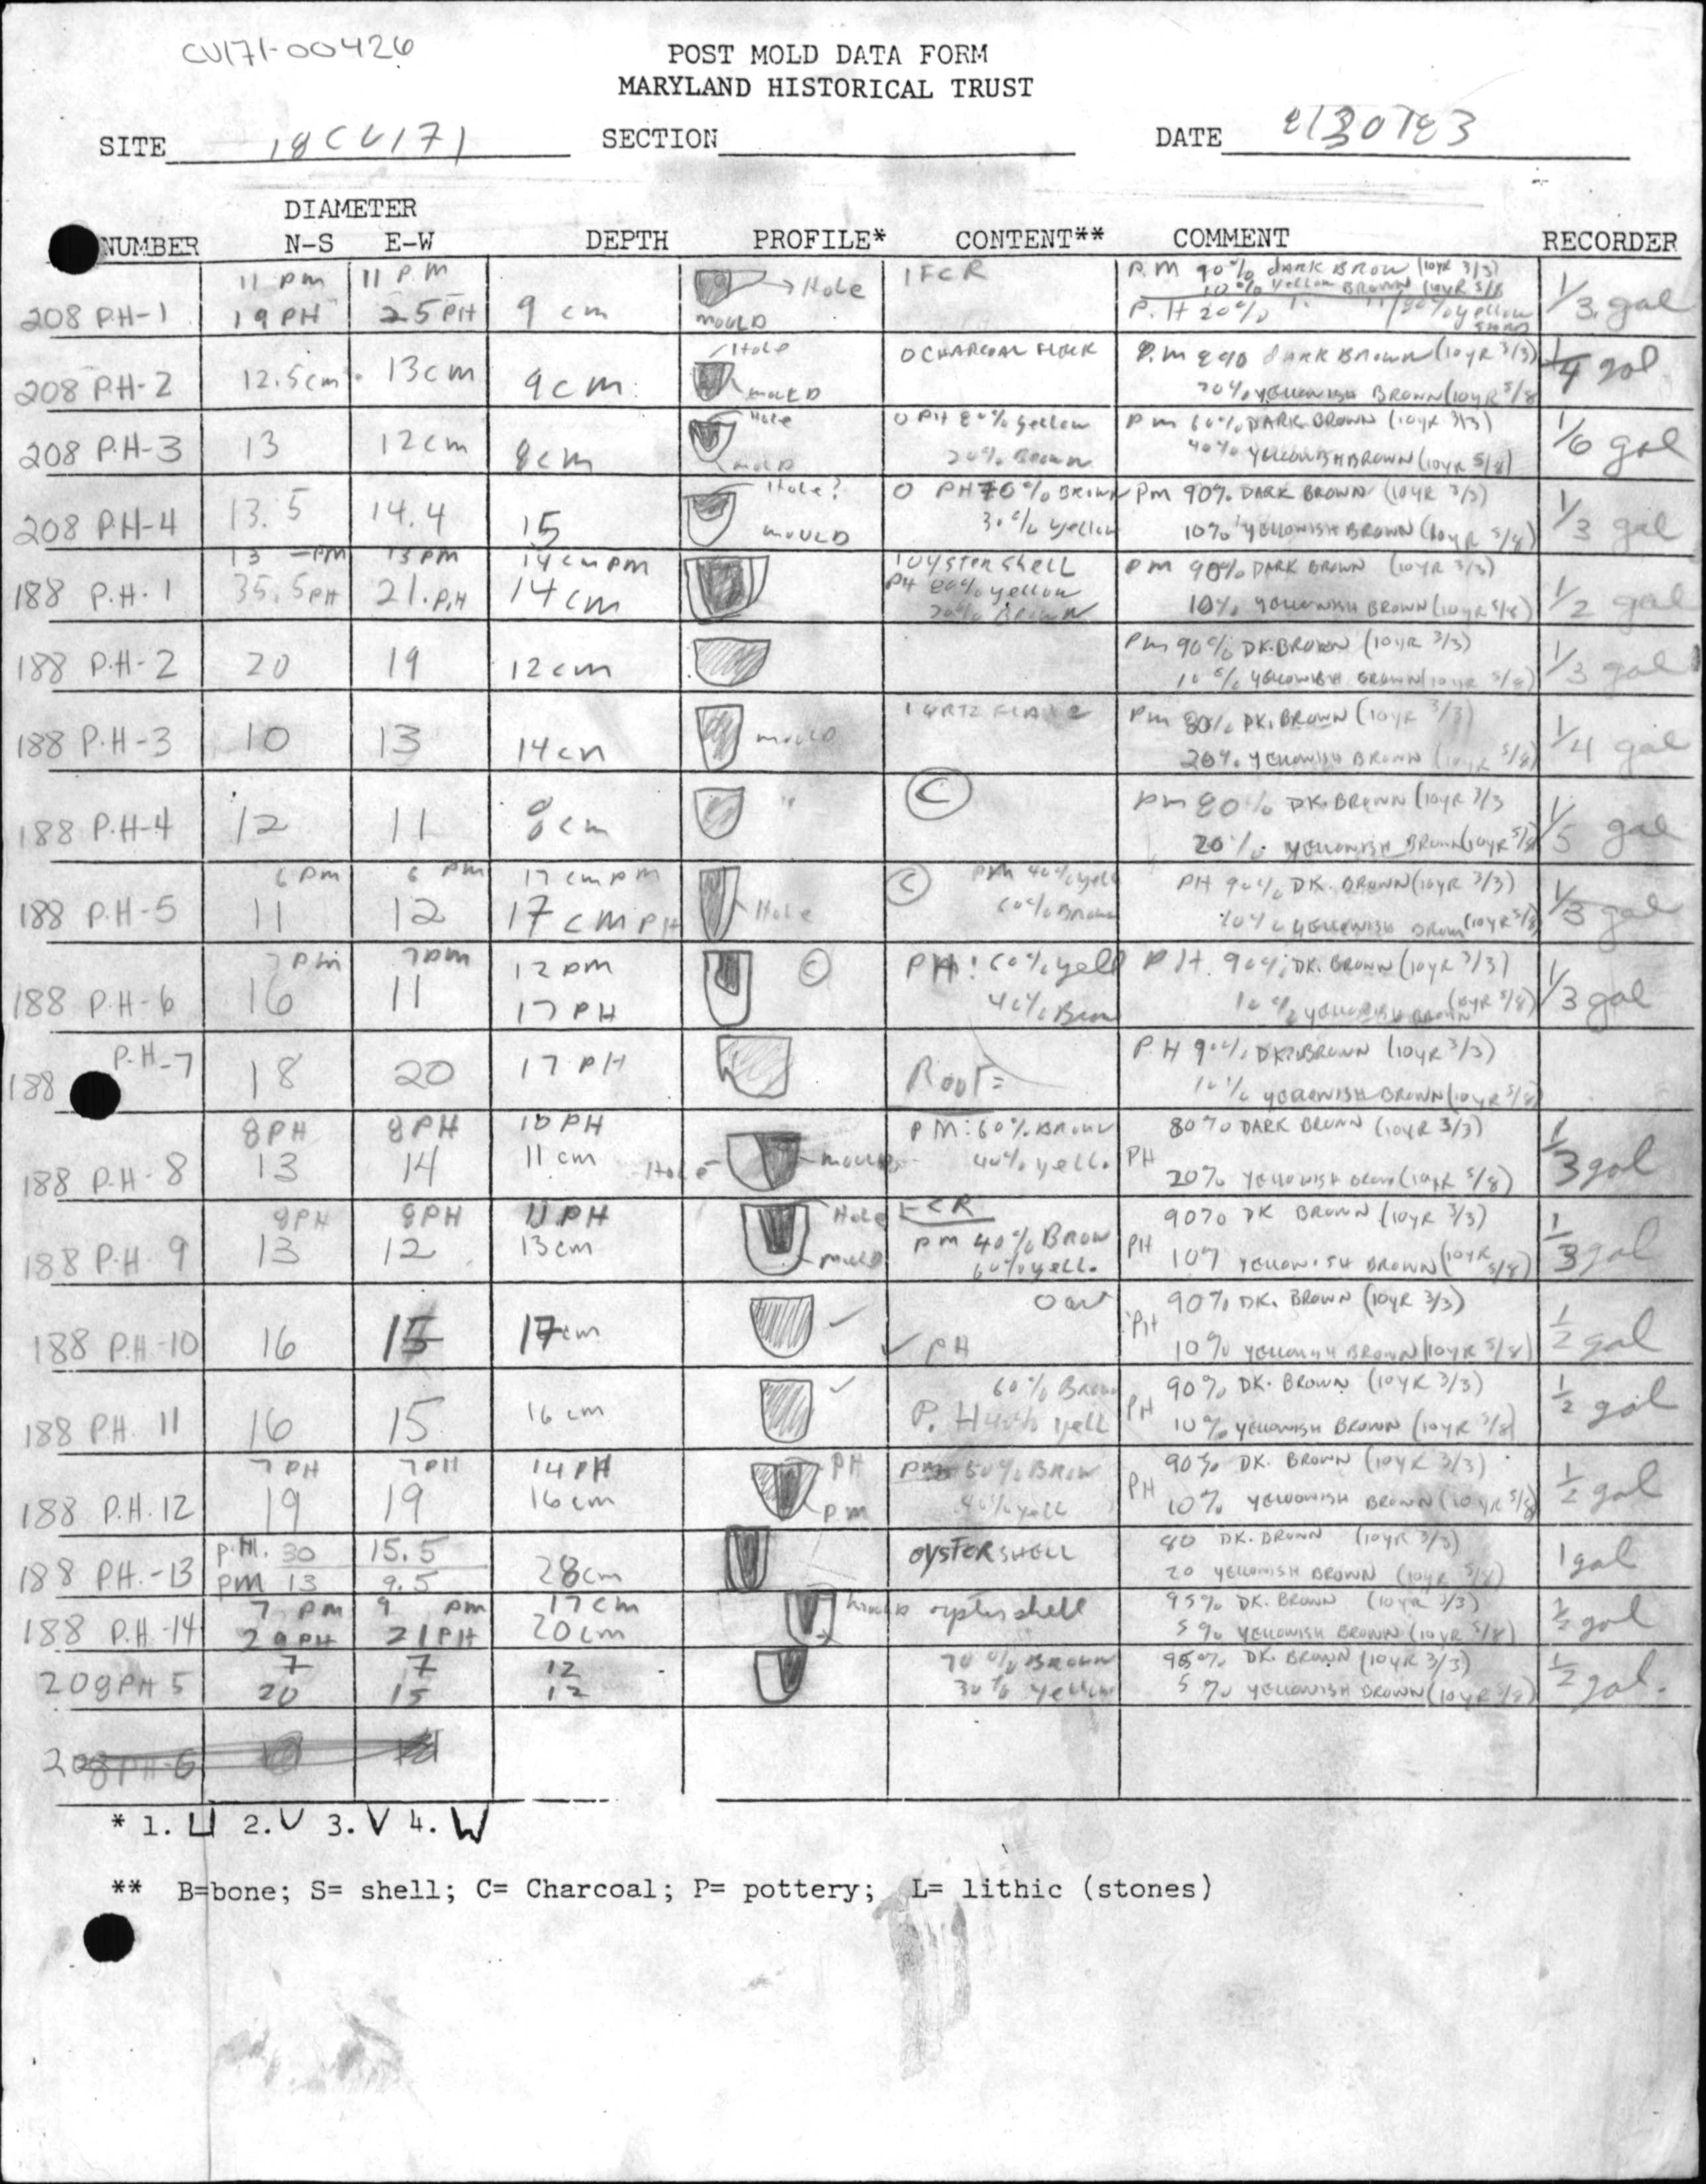 CV171-00426
POST MOLD DATA FORM
MARYLAND HISTORICAL TRUST
SITE 18CV171 SECTION DATE 8/30/83
DIAMETER
NUMBER N-S E-W DEPTH PROFILE* CONTENT** COMMENT RECORDER
11 PM 11 P.M → Hole 1 FCR P.M 90% DARK BROW (10YR 3/3)
10% Yellow BROWN (10YR 5/8
208 P.H-1 19 PH 25 PH 9 cm MOULD P.H 20% " " /80% yellow 1/3 gal
Hole 0 CHARCOAL FLECK P.M 890 DARK BROWN (10YR 3/3)
208 P.H-2 12.5cm 13cm 9cm. MOULD 20% YELLOWISH BROWN (10YR 5/8 1/4 gal
Hole 0 PH 80% yellow P m 60% DARK BROWN (10YR 3/3)
208 P.H-3 13 12cm 8cm MOLD 20% Brown 40% YELLOWISH BROWN (10YR 5/8) 1/6 gal
Hole? 0 PH 70% BROWN PM 90% DARK BROWN (10YR 3/3)
208 PH-4 13.5 14.4 15 MOULD 30% yellow 10% YELLOWISH BROWN (10YR 5/8) 1/3 gal
13 -PM 13 PM 14cm PM 1 OYSTER SHELL PM 90% DARK BROWN (10YR 3/3)
188 P.H. 1 35.5 PH 21. P.H 14cm PH 80% yellow 10% YELLOWISH BROWN (10YR 5/8) 1/2 gal
20% BROWN
Pm 90% DK. BROWN (10YR 3/3)
188 P.H-2 20 19 12cm 10% YELLOWISH BROWN (10YR 5/8) 1/3 gal
1 QRTZ FLAKE Pm 80% DK. BROWN (10YR 3/3)
188 P.H-3 10 13 14cm mould 20% YELLOWISH BROWN (10YR 5/8) 1/4 gal
C Pm 80% DK. BROWN (10YR 3/3
188 P.H-4 12 11 8cm " 20% YELLOWISH BROWN (10YR 5/8 1/5 gal
6 PM 6 PM 17 cm PM C PM 40% yell PH 90% DK. BROWN (10YR 3/3)
188 P.H-5 11 12 17 cm PH Hole 60% Brown 10% YELLOWISH BROWN (10YR 5/8) 1/3 gal
7 PM 7 PM 12 PM C PH: 60% yell P.H. 90% DK. BROWN (10YR 3/3)
188 P.H-6 16 11 17 PH 40% Brow 10% YELLOWISH BROWN (10YR 5/8) 1/3 gal
P.H-7 P.H 90% DK. BROWN (10YR 3/3)
188 18 20 17 PH Root= 10% YELLOWISH BROWN (10YR 5/8)
8 PH 8 PH 10 PH PM: 60% BROWN 80% DARK BROWN (10YR 3/3)
188 P.H-8 13 14 11 cm Hole mould 40% yell. PH 20% YELLOWISH BROWN (10YR 5/8) 1/3 gal
8PH 8PH 11 PH Hole FCR 90% DK BROWN (10YR 3/3)
188 P.H. 9 13 12 13 cm mold PM 40% BROW PH 10% YELLOWISH BROWN (10YR 5/8) 1/3 gal
60% yell.
90% DK. BROWN (10YR 3/3)
188 P.H.-10 16 15 17cm ✓ ✓ PH PH 10% YELLOWISH BROWN (10YR 5/8) 1/2 gal
60% Brown 90% DK. BROWN (10YR 3/3)
188 PH. 11 16 15 16 cm ✓ P.H 40% yell PH 10% YELLOWISH BROWN (10YR 5/8) 1/2 gal
7 PH 7 PH 14 PH PH PM 60% BROW 90% DK. BROWN (10YR 3/3)
188 P.H. 12 19 19 16 cm PM 40% yell PH 10% YELLOWISH BROWN (10YR 5/8) 1/2 gal
P.H. 30 15.5 OYSTER SHELL 80 DK. BROWN (10YR 3/3)
188 PH.-13 PM 13 9.5 28cm 20 YELLOWISH BROWN (10YR 5/8) 1 gal
7 PM 9 PM 17cm mould oyster shell 95% DK. BROWN (10YR 3/3)
188 P.H-14 29 PH 21 PH 20cm 5% YELLOWISH BROWN (10YR 5/8) 1/2 gal
7 7 12 70% BROWN 95% DK. BROWN (10YR 3/3)
208 PH 5 20 15 12 30% yellow 5% YELLOWISH BROWN (10YR 5/8) 1/2 gal.
208 PH-6
* 1. U 2. U 3. V 4. W
** B=bone; S= shell; C= Charcoal; P= pottery; L= lithic (stones)